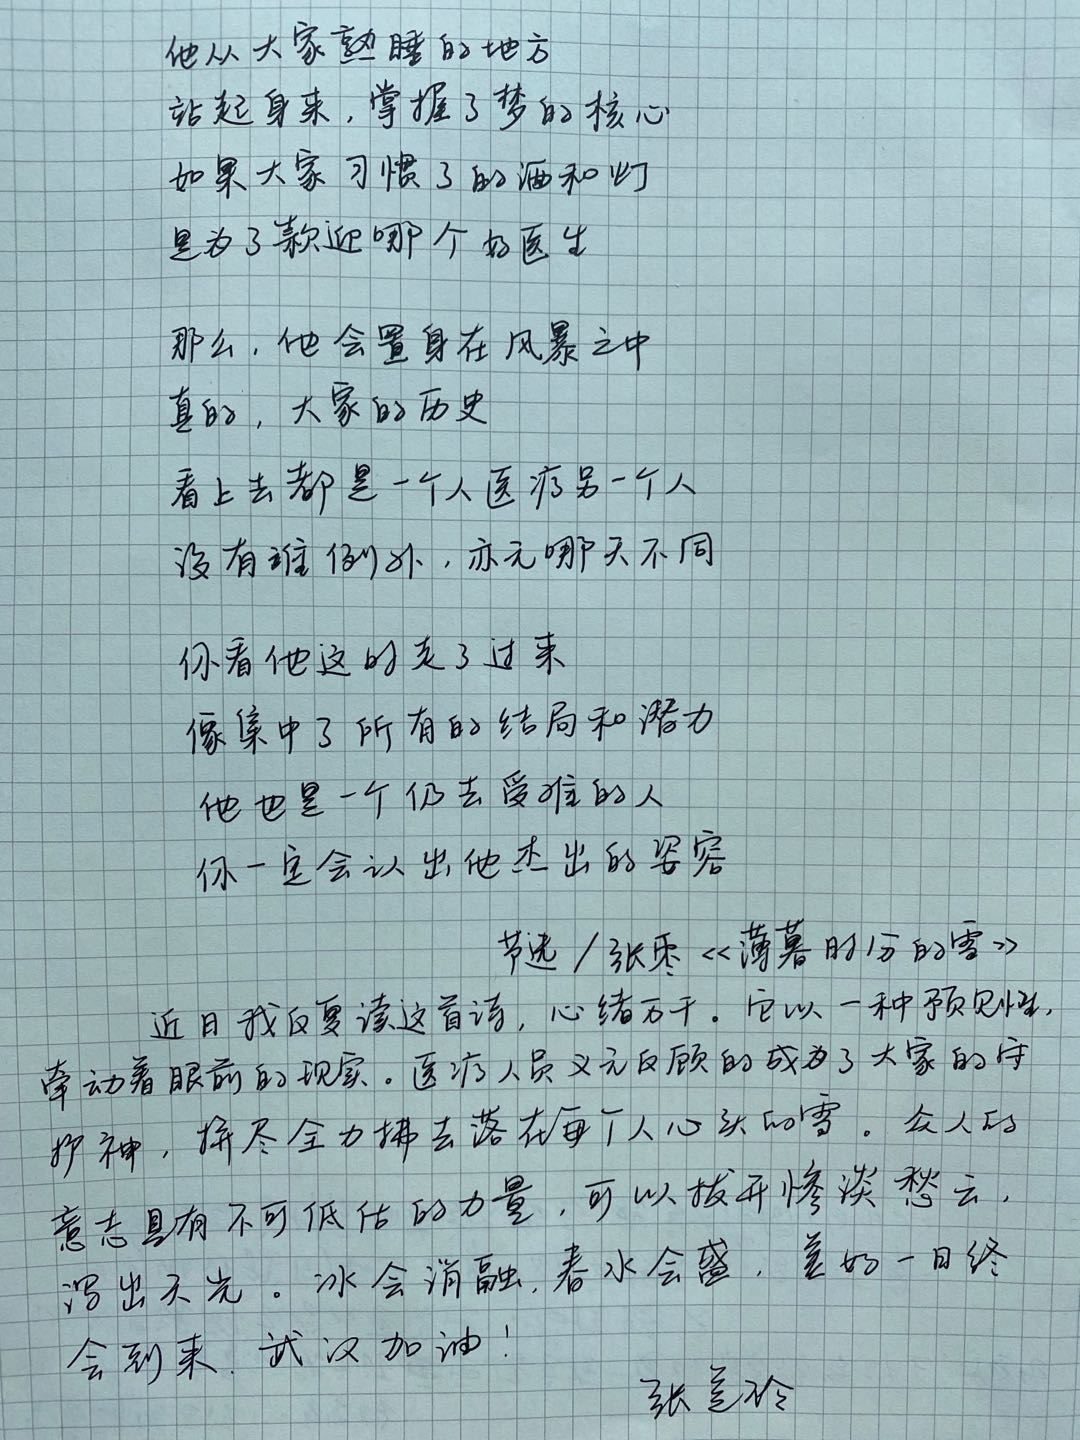 他从大家熟睡的地方
站起身来，掌握了梦的核心
如果大家习惯了的酒和灯
是为了款迎哪个好医生
那么，他会置身在风暴之中
真的，大家的历史
看上去都是一个人医疗另一个人
没有谁例外，亦无哪天不同
你看他这时走了过来
像集中了所有的结局和潜力
他也是一个仍去受难的人
你一定会认出他杰出的姿容
节选/张枣《薄暮时分的雪》
近日我反复读这首诗，心绪万千。它以一种预见性，
牵动着眼前的现实。医疗人员义无反顾的成为了大家的守
护神，拼尽全力拂去落在每个人心头的雪。众人的
意志具有不可低估的力量，可以拨开惨淡愁云，
泻出天光。冰会消融，春水会盛，美好一日终
会到来，武汉加油！